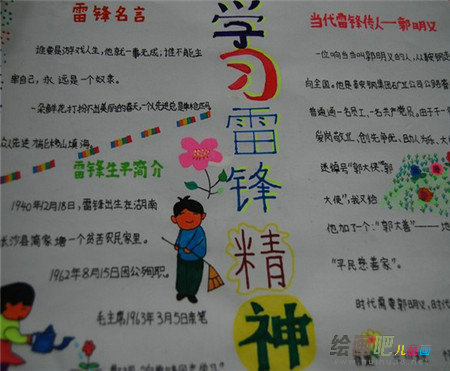 雷锋名言
谁要是游戏人生,他就一事无成;谁不能主
宰自己,永远是一个奴隶。
一朵鲜花打扮不出美丽的春天,一个人先进总是单枪匹马
众人先进才能移山填海。
雷锋生平简介
1940年12月18日,雷锋出生在湖南
长沙县简家塘一个贫苦农民家里。
1962年8月15日因公殉职。
毛主席1963年3月5日亲笔
学习雷锋精神
当代雷锋传人——郭明义
一位响当当叫郭明义的人,从鞍钢走
向全国。他是鞍钢集团矿业公司公路
普通通一名员工,一名共产党员。由于
爱岗敬业,创先争优,助人为乐,大
送绰号"郭大傻"郭
大侠",我又给
他加了一个:"郭大善"——地
"平民慈善家"。
时代需要郭明义,时代
绘画吧儿童画